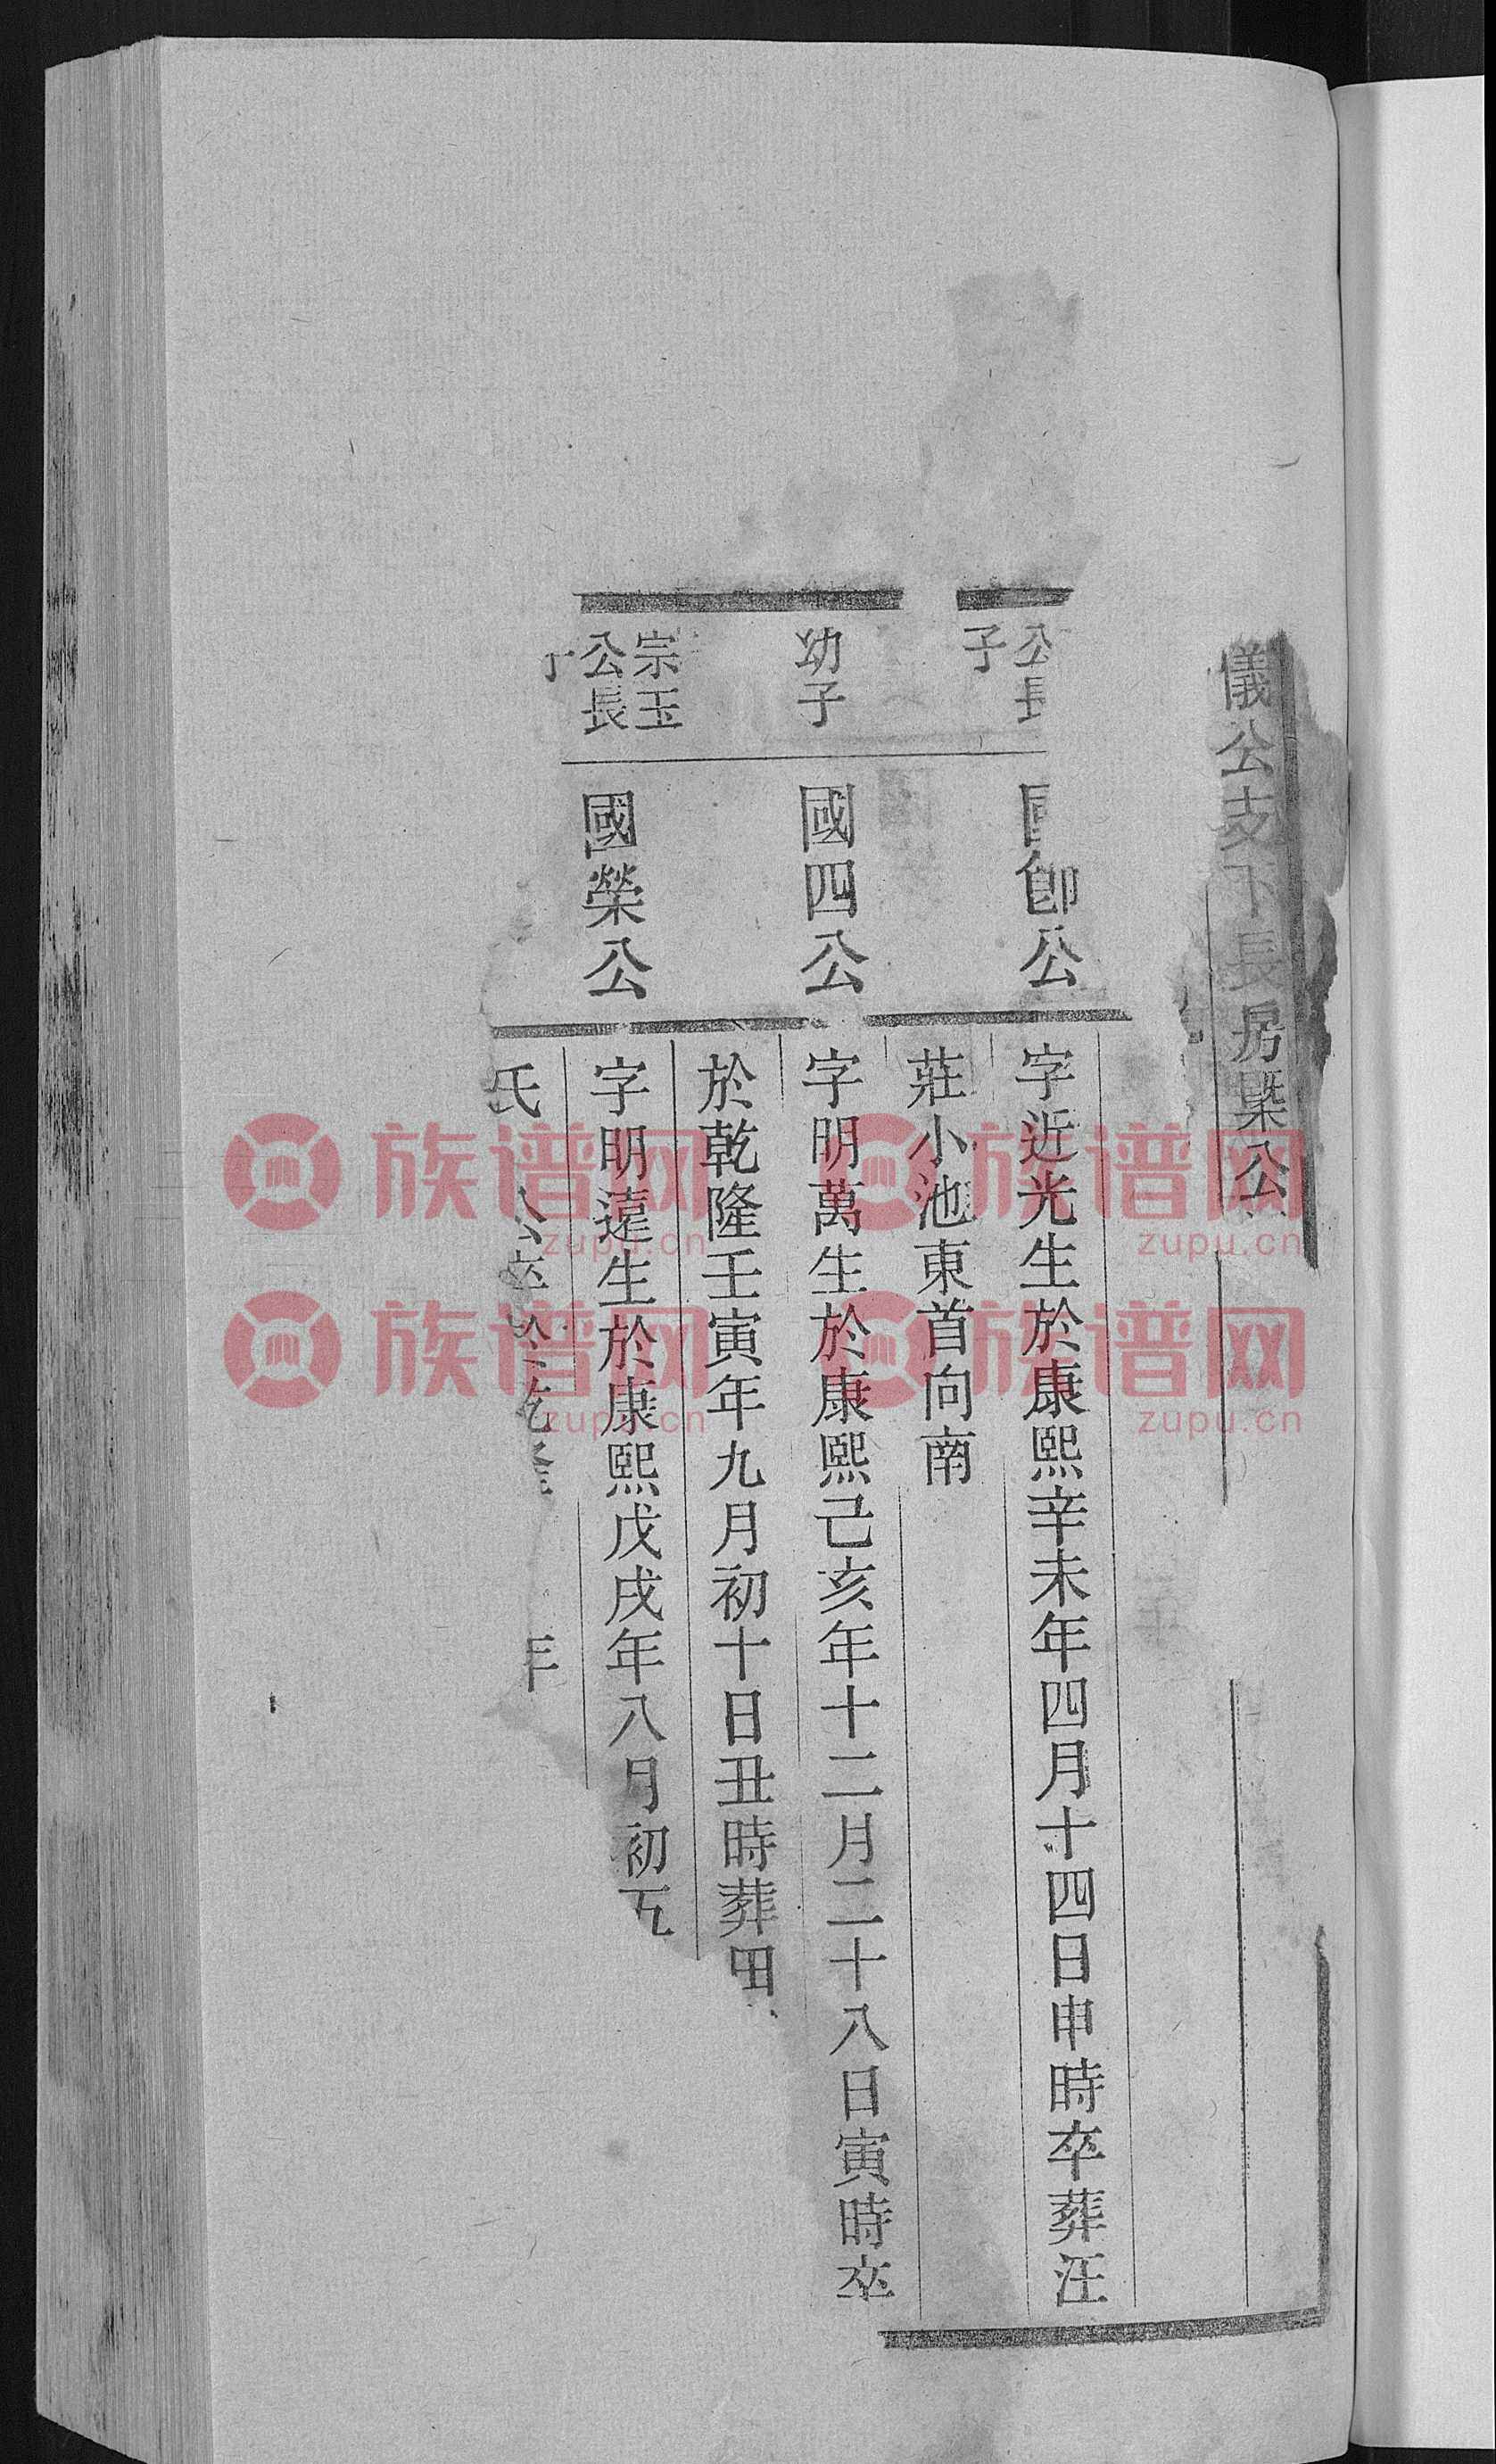 儀公支下長房
公
公長
子
公
字近光生於康熙辛未年四月十四日申時卒葬汪
莊小池東首向南
幼子
國四公
字明萬生於康熙己亥年十二月二十八日寅時卒
於乾隆壬寅年九月初十日丑時葬田
宗玉
公長
國榮公
字明遠生於康熙戊戌年八月初五
氏
公卒於乾隆
年
族谱网
zupu.cn
族谱网
zupu.cn
族谱网
zupu.cn
族谱网
zupu.cn